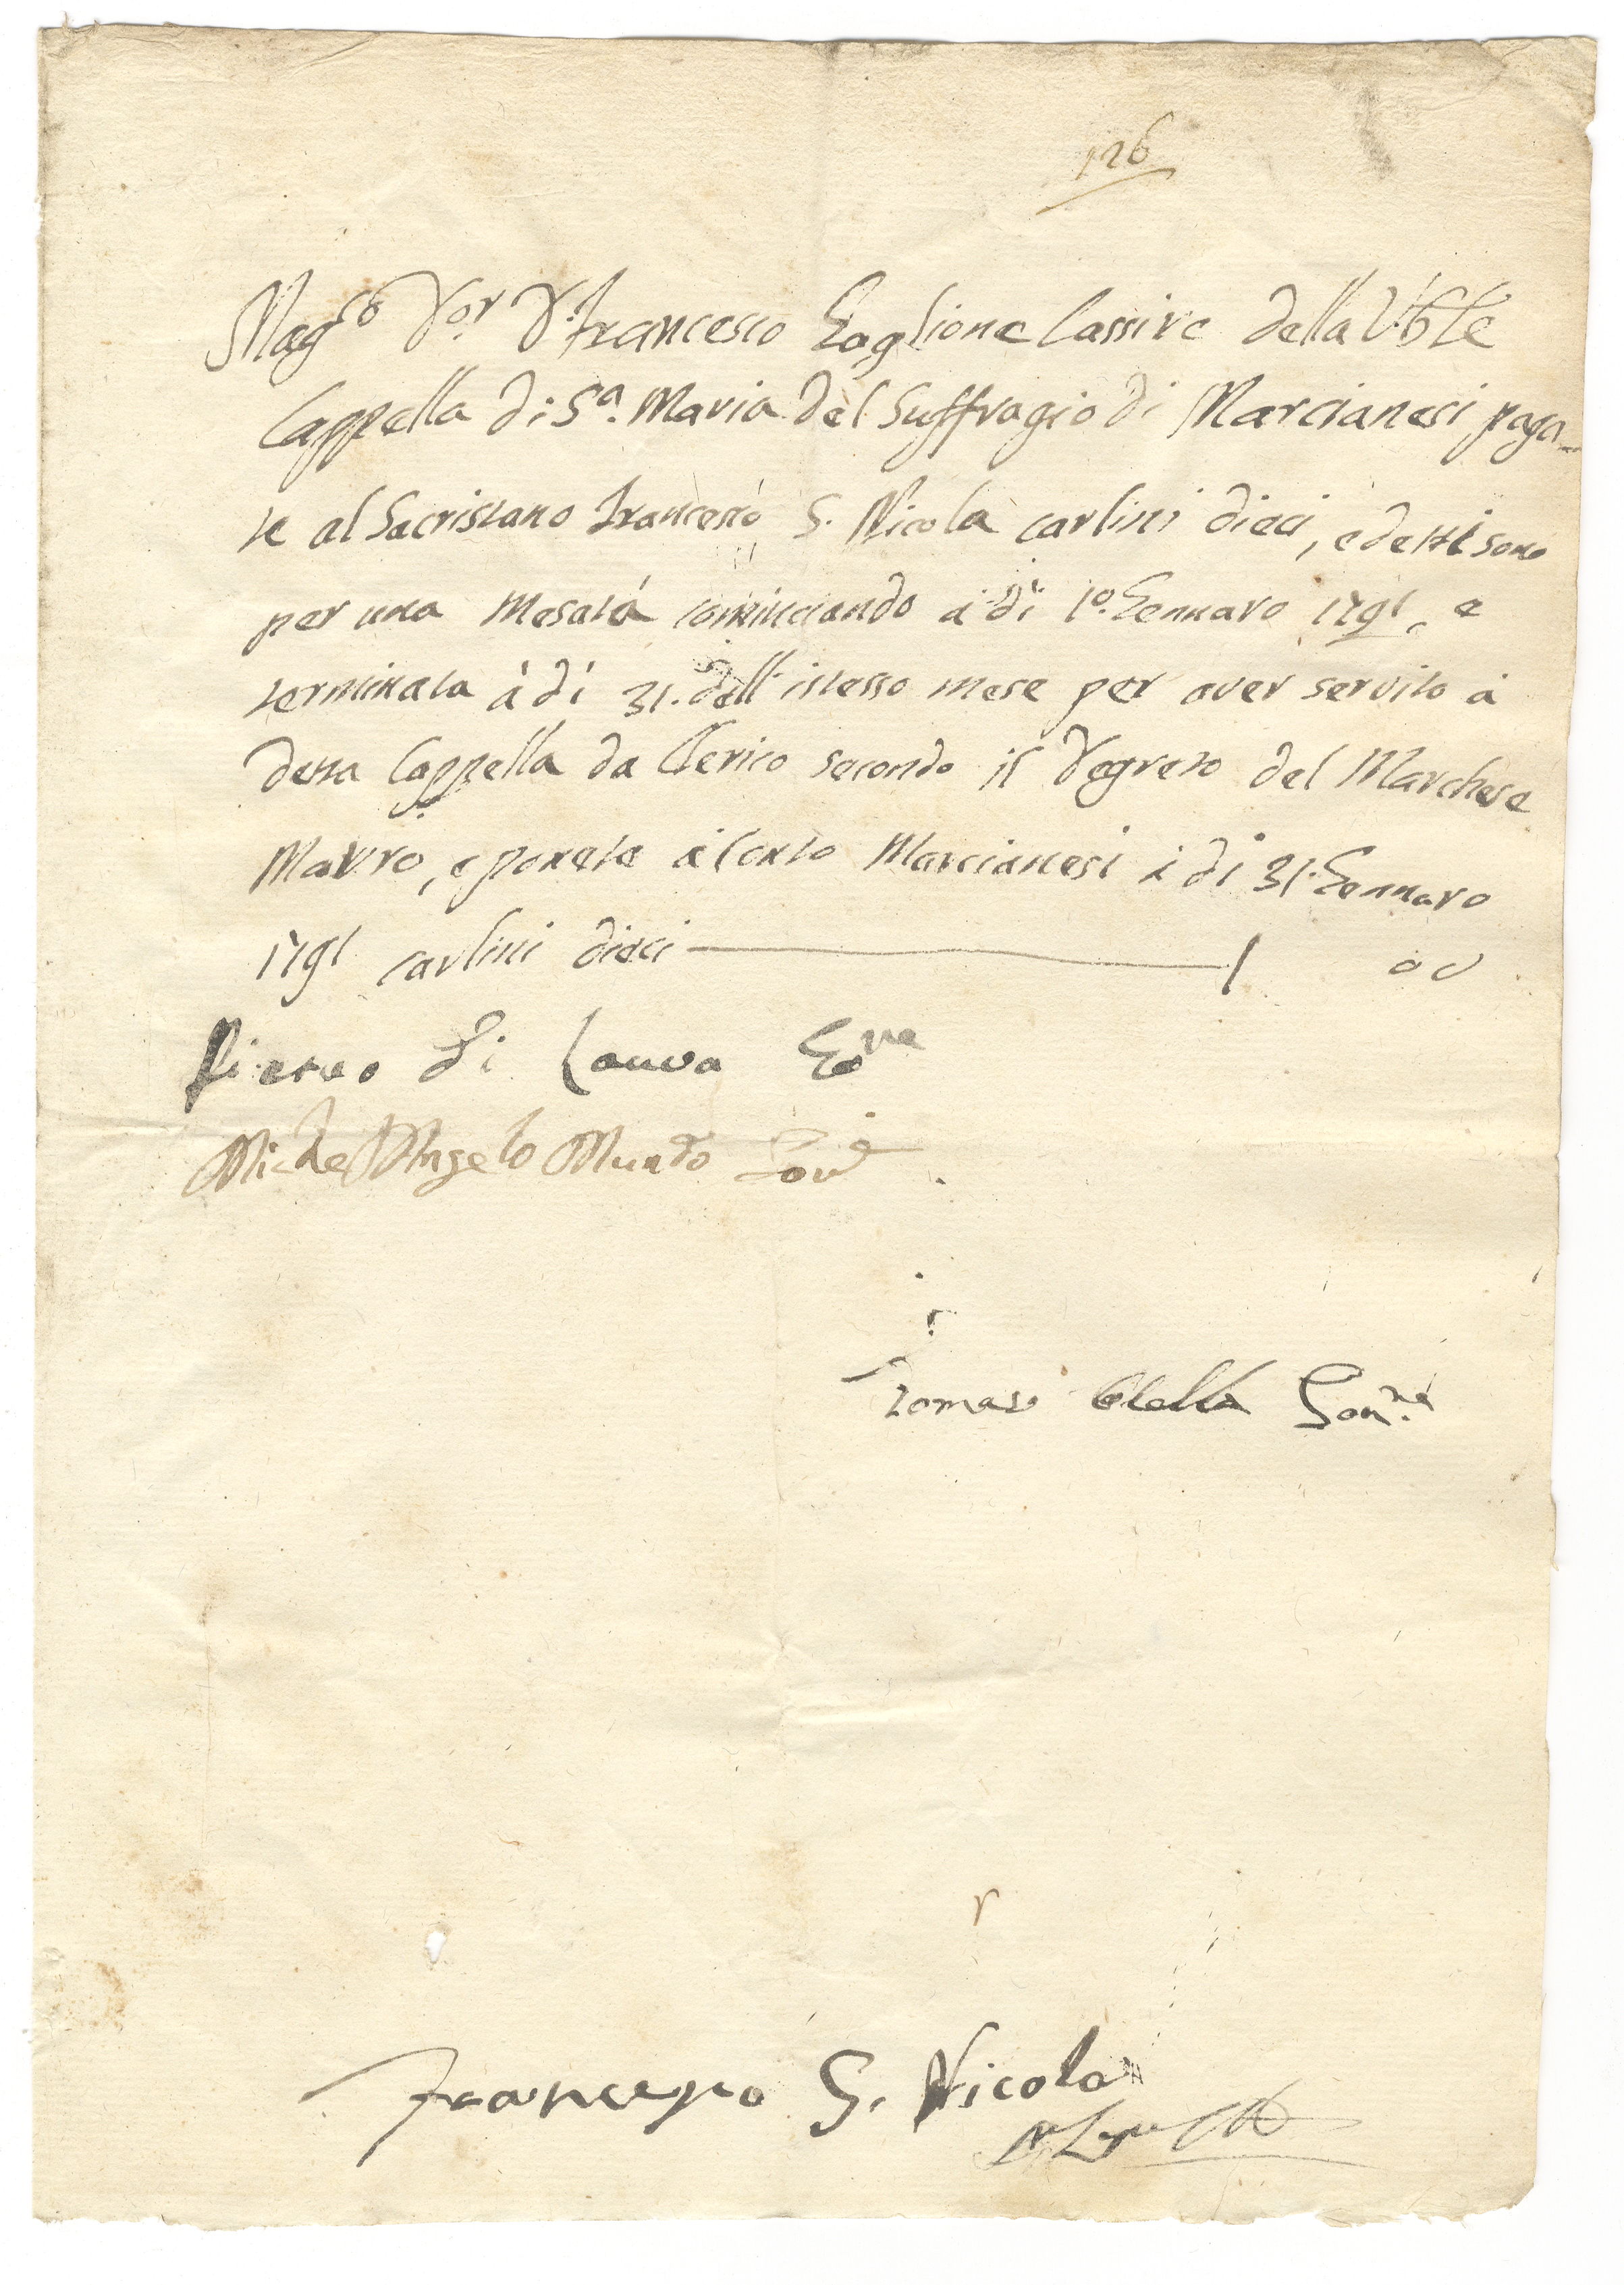 126
Mag.co D.or D. Francesco Zaglione Cassire della V.ble
Cappella di S.a Maria del Suffragio di Marcianesi paga-
te al Sacristano Francesco S. Nicola carlini dieci, e detti sono
per una mesata cominciando à dì 1o. Gennaro 1791 e
terminata à dì 31. dell'istesso mese per aver servito à
detta Cappella da Clerico secondo il Degreto del Marchese
Mauro, e ponete à Conto Marcianesi à dì 31. Gennaro
1791 carlini dieci — 1 00
Pietro di Lauro Go.ne
Michel'Angelo Mundo Gov.e
Tomaso Gov.ne
Francesco S. Nicola